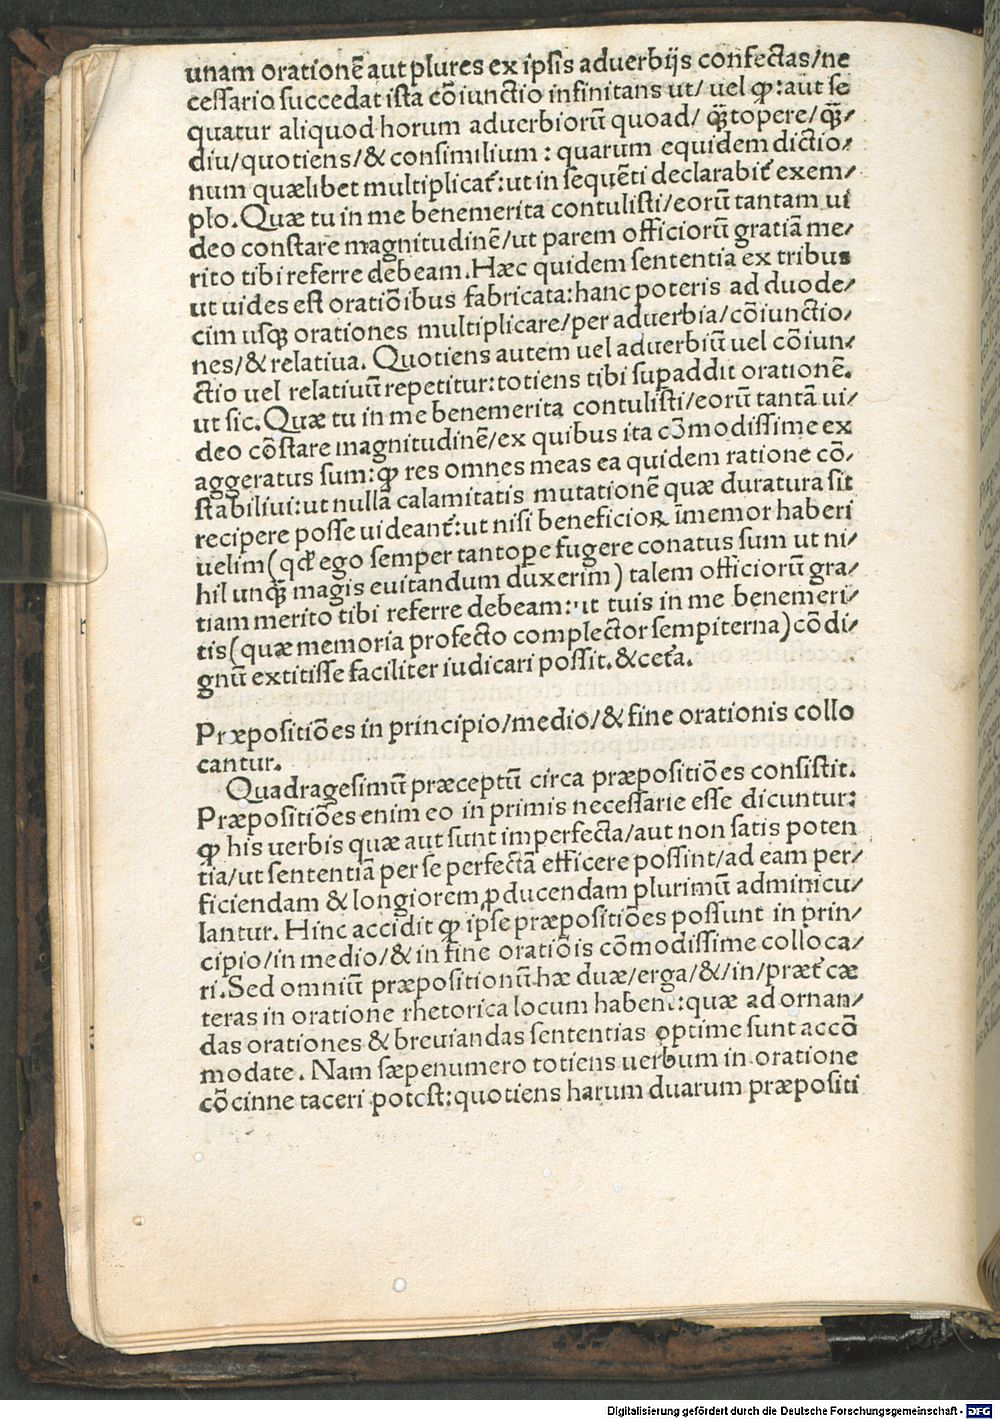 unam orationē aut plures ex ipsis aduerbijs confectas/ne
cessario succedat ista cōiunctio infinitans ut/ uel ꝙ: aut se
quatur aliquod horum aduerbiorū quoad/ ꝗ̄topere/ꝗ̄/
diu/quotiens/& consimilium: quarum equidem dictio/
num quælibet multiplicat᷑: ut in sequēti declarabit᷑ exem/
plo. Quæ tu in me benemerita contulisti/eorū tantam ui
deo constare magnitudinē/ut parem officiorū gratiā me/
rito tibi referre debeam. Hæc quidem sententia ex tribus
ut uides est oratiōibus fabricata: hanc poteris ad duode/
cim usqꝫ orationes multiplicare/per aduerbia/cōiunctio/
nes/& relatiua. Quotiens autem uel aduerbiū uel cōiun/
ctio uel relatiuū repetitur: totiens tibi supaddit orationē.
ut sic. Quæ tu in me benemerita contulisti/eorū tantā ui/
deo cōstare magnitudinē/ex quibus ita cōmodissime ex
aggeratus sum: ꝙ res omnes meas ea quidem ratione cō/
stabiliui: ut nullā calamitatis mutationē quæ duratura sit
recipere posse uideant᷑: ut nisi beneficioꝝ īmemor haberi
uelim (qđ ego semper tantope fugere conatus sum ut ni/
hil unꝗ̄ magis euitandum duxerim) talem officiorū gra/
tiam merito tibi referre debeam: ut tuis in me benemeri/
tis (quæ memoria profecto complector sempiterna) cōdi/
gnū extitisse faciliter iudicari possit. & cet᷑a.
Præpositiōes in principio/medio/& fine orationis collo
cantur.
Quadragesimū præceptū circa præpositiōes consistit.
Præpositiōes enim eo in primis necessarie esse dicuntur:
ꝙ his uerbis quæ aut sunt imperfecta/aut non satis poten
tia/ut sententiā per se perfectā efficere possint/ad eam per/
ficiendam & longiorem ꝓducendam plurimū adminicu/
lantur. Hinc accidit ꝙ ipse præpositiōes possunt in prin/
cipio/in medio/& in fine oratiōis cōmodissime colloca/
ri. Sed omniū præpositionum hæ duæ/erga/&/in/præt᷑ cæ
teras in oratione rhetorica locum habent: quæ ad ornan/
das orationes & breuiandas sententias optime sunt accō
modate. Nam sæpenumero totiens uerbum in oratione
cōcinne taceri potest: quotiens harum duarum præpositi
Digitalisierung gefördert durch die Deutsche Forschungsgemeinschaft - DFG